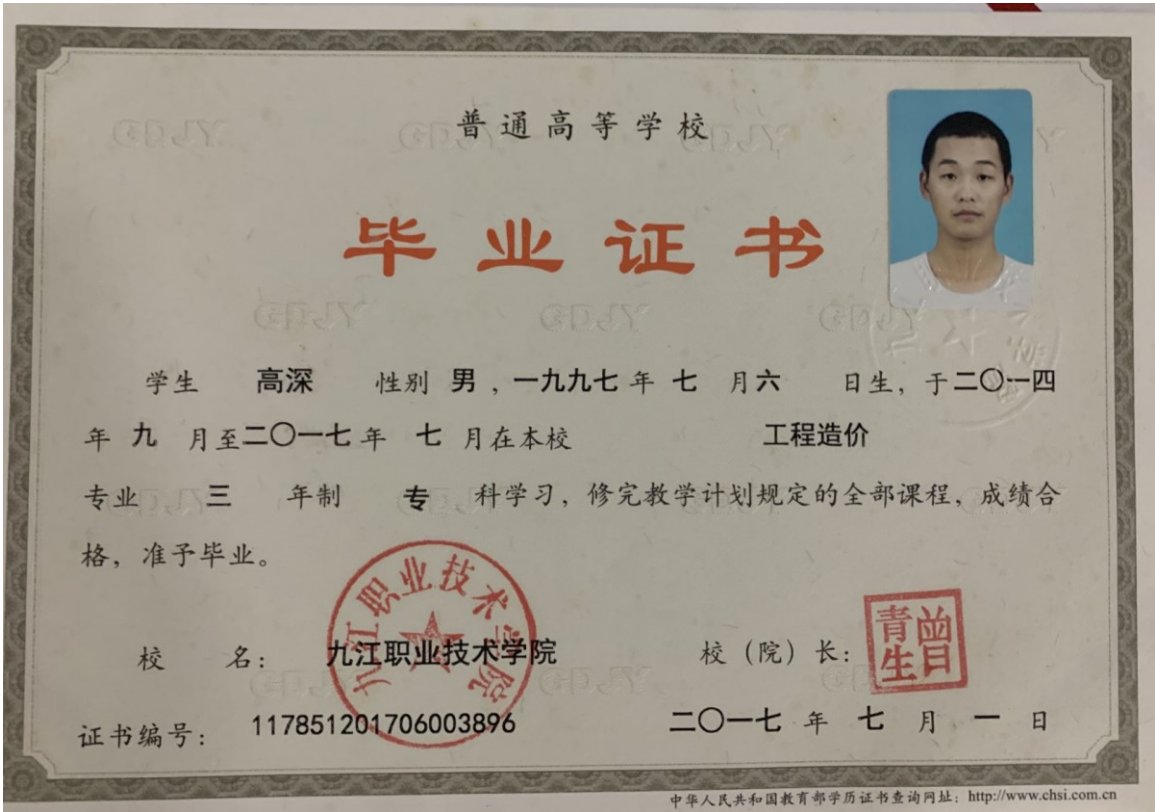 普通高等学校
毕业证书
学生 高深 性别 男，一九九七年 七 月六 日生，于二〇一四
年 九 月至二〇一七年 七 月在本校 工程造价
专业 三 年制 专 科学习，修完教学计划规定的全部课程，成绩合
格，准予毕业。
九江职业技术学院
校 名： 九江职业技术学院 校（院）长： 曾青生印
证书编号： 117851201706003896 二〇一七 年 七 月 一 日
中华人民共和国教育部学历证书查询网址：http://www.chsi.com.cn